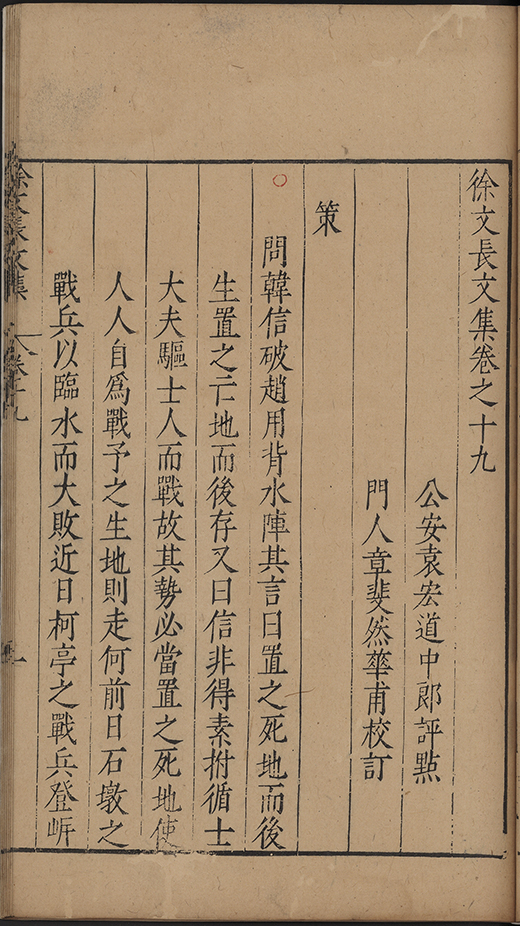 徐文長文集卷之十九
公安袁宏道中郎評點
門人章斐然華甫校訂
策
問韓信破趙用背水陣其言曰置之死地而後
生置之亡地而後存又曰信非得素拊循士
大夫驅士人而戰故其勢必當置之死地使
人人自爲戰予之生地則走何前日石墩之
戰兵以臨水而大敗近日柯亭之戰兵登岍
徐文長文集
卷十九
一